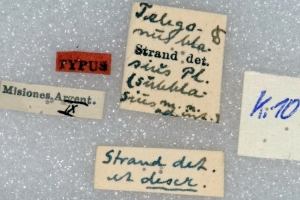 TYPUS
Misiones, Argent.
IX
Telego-
nus bla-
Strand det.
sius Pl.
(subbla-
sius m.
Strand det.
et descr.
K.10